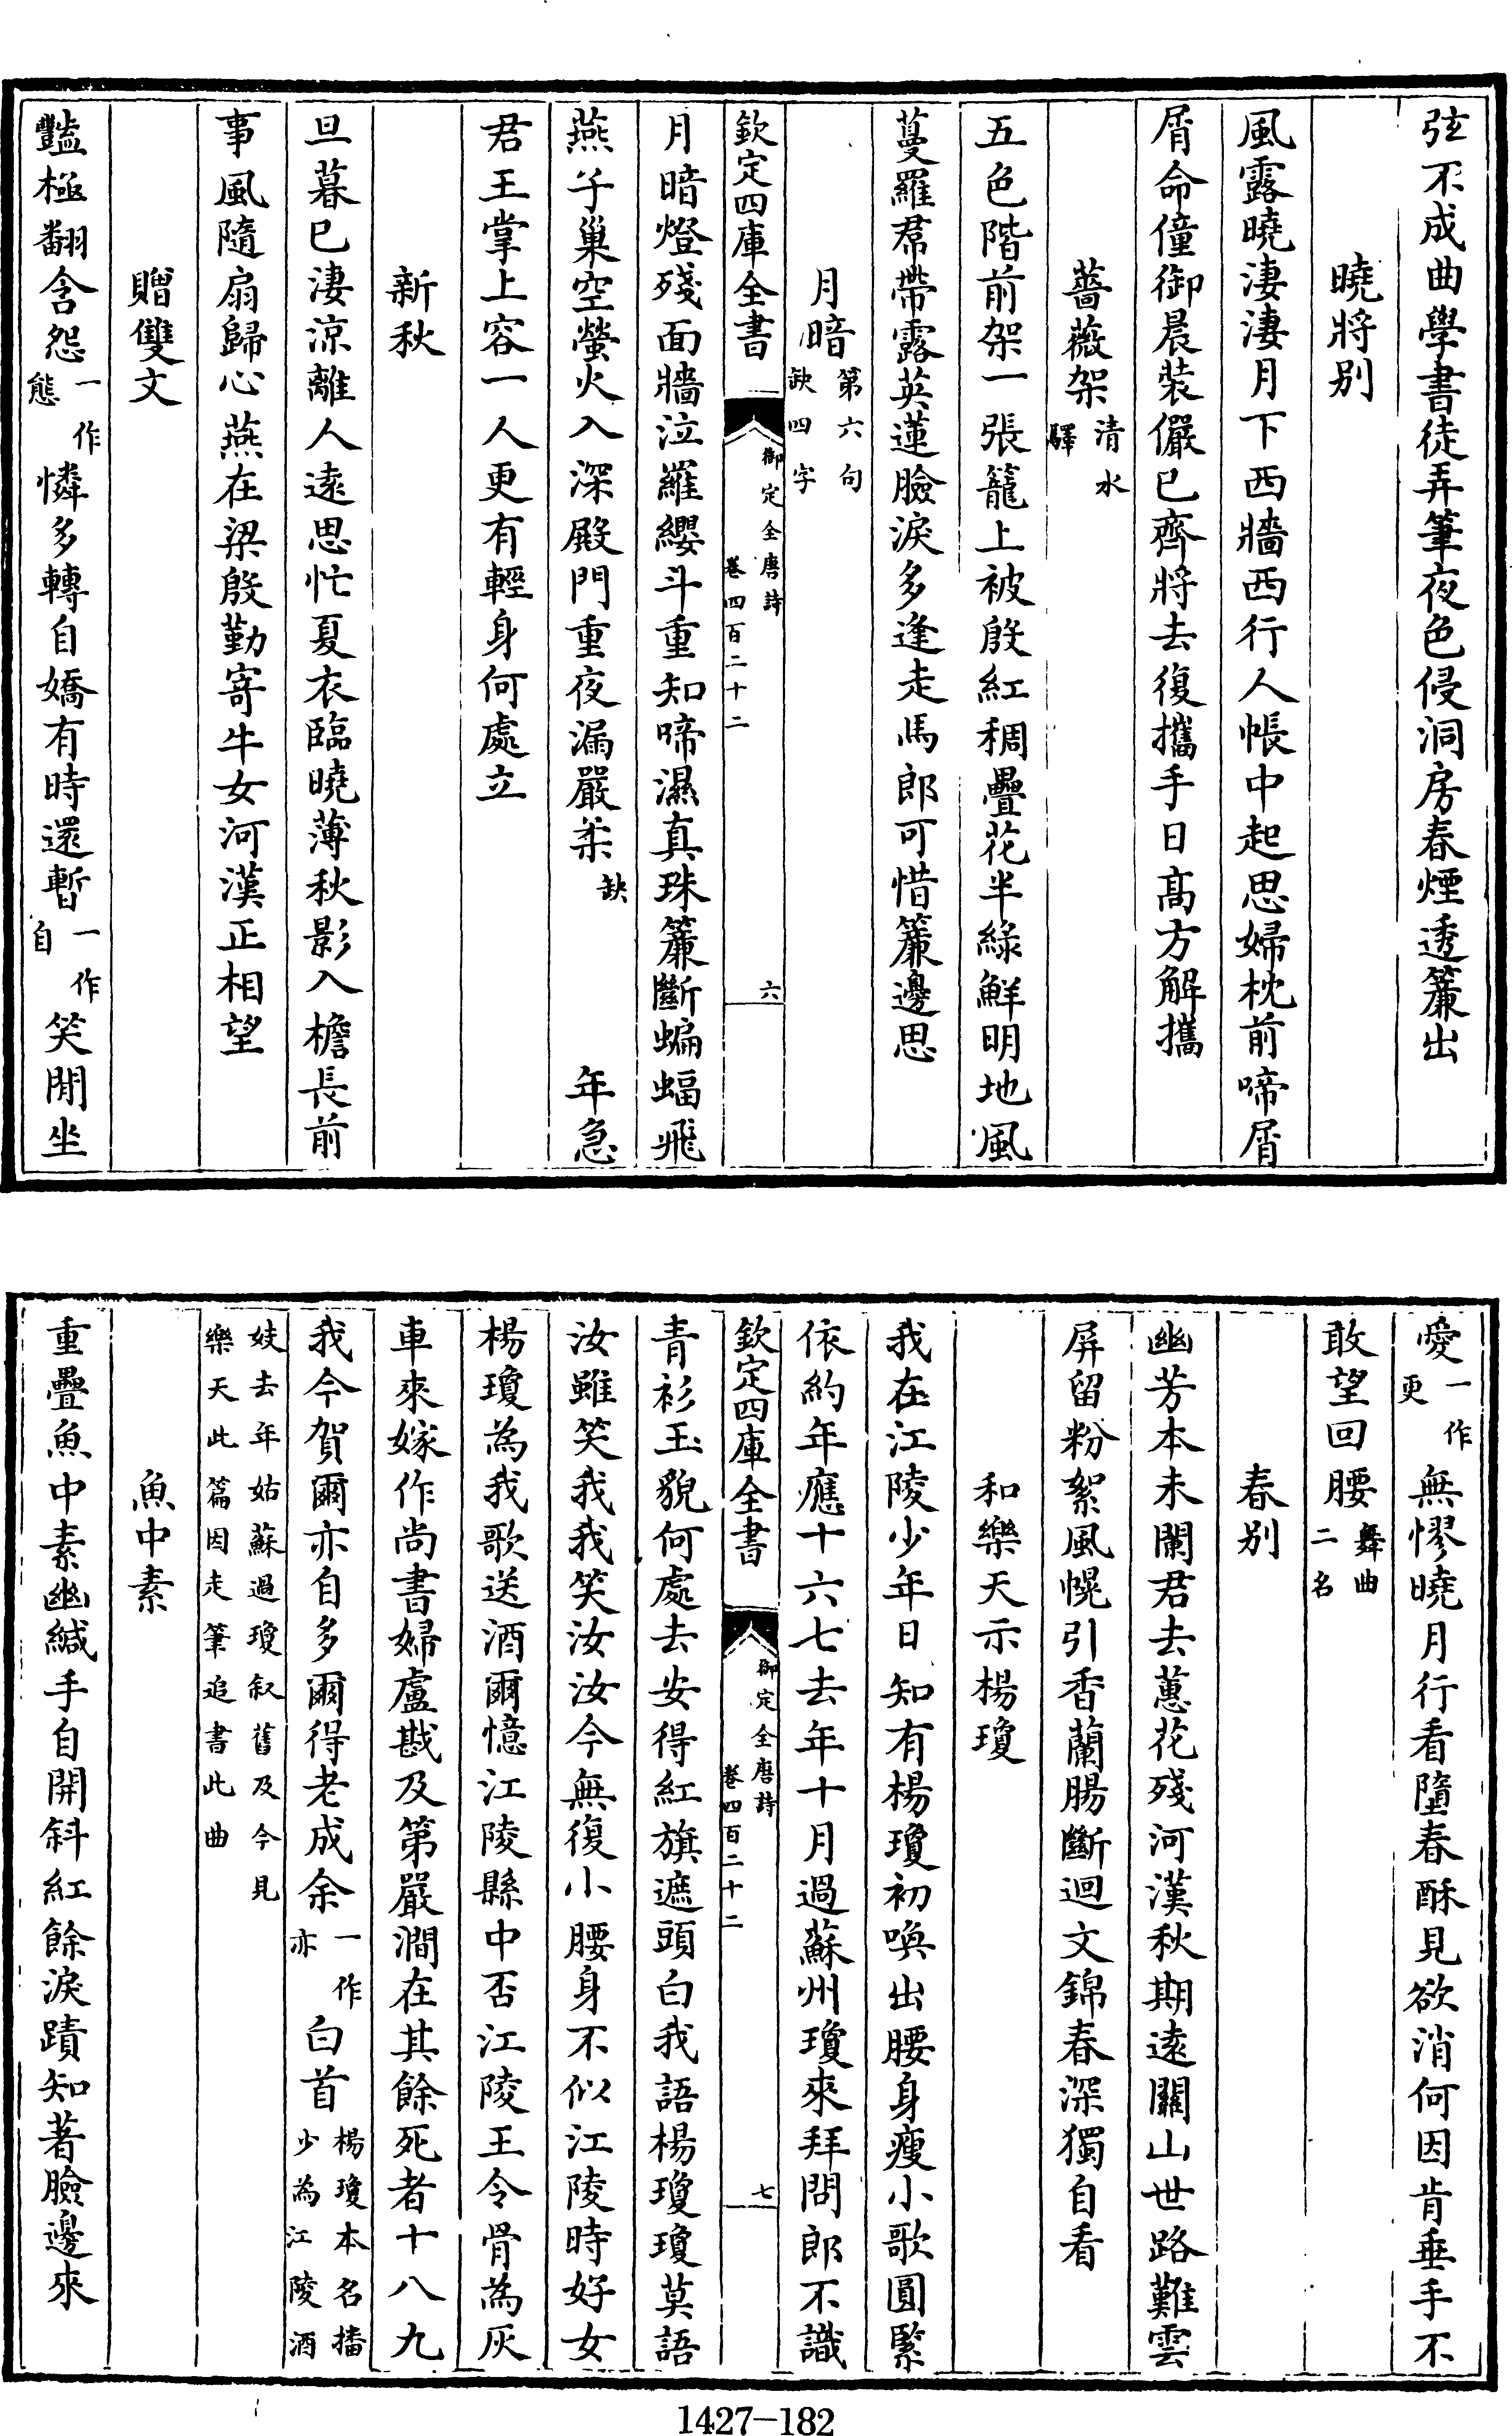 弦不成曲學書徒弄筆夜色侵洞房春煙透簾出
曉將別
風露曉淒淒月下西牆西行人帳中起思婦枕前啼屑
屑命僮御晨裝儼已齊將去復攜手日高方解攜
薔薇架清水驛
五色階前架一張籠上被殷紅稠疊花半綠鮮明地風
蔓羅帬帶露英蓮臉淚多逢走馬郎可惜簾邊思
月暗第六句缺四字
欽定四庫全書
御定全唐詩
卷四百二十二
六
月暗燈殘面牆泣羅纓斗重知啼濕真珠簾斷蝙蝠飛
燕子巢空螢火入深殿門重夜漏嚴柔缺 年急
君王掌上容一人更有輕身何處立
新秋
旦暮已淒涼離人遠思忙夏衣臨曉薄秋影入檐長前
事風隨扇歸心燕在梁殷勤寄牛女河漢正相望
贈雙文
豔極翻含怨一作態憐多轉自嬌有時還暫一作自笑閒坐
愛一作更無憀曉月行看墮春酥見欲消何因肯垂手不
敢望回腰舞曲二名
春別
幽芳本未闌君去蕙花殘河漢秋期遠關山世路難雲
屏留粉絮風幌引香蘭腸斷迴文錦春深獨自看
和樂天示楊瓊
我在江陵少年日知有楊瓊初喚出腰身瘦小歌圓緊
依約年應十六七去年十月過蘇州瓊來拜問郎不識
欽定四庫全書
御定全唐詩
卷四百二十二
七
青衫玉貌何處去安得紅旗遮頭白我語楊瓊瓊莫語
汝雖笑我我笑汝汝今無復小腰身不似江陵時好女
楊瓊為我歌送酒爾憶江陵縣中否江陵王令骨為灰
車來嫁作尚書婦盧戡及第嚴澗在其餘死者十八九
我今賀爾亦自多爾得老成余一作亦白首楊瓊本名播少為江陵酒
妓去年姑蘇過瓊叙舊及今見樂天此篇因走筆追書此曲
魚中素
重疊魚中素幽緘手自開斜紅餘淚蹟知著臉邊來
1427-182